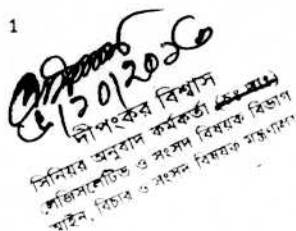 1
৫/১০/২০২০
দীপংকর বিশ্বাস
সিনিয়র অনুবাদ কর্মকর্তা
লেজিসলেটিভ ও সংসদ বিষয়ক বিভাগ
আইন, বিচার ও সংসদ বিষয়ক মন্ত্রণালয়